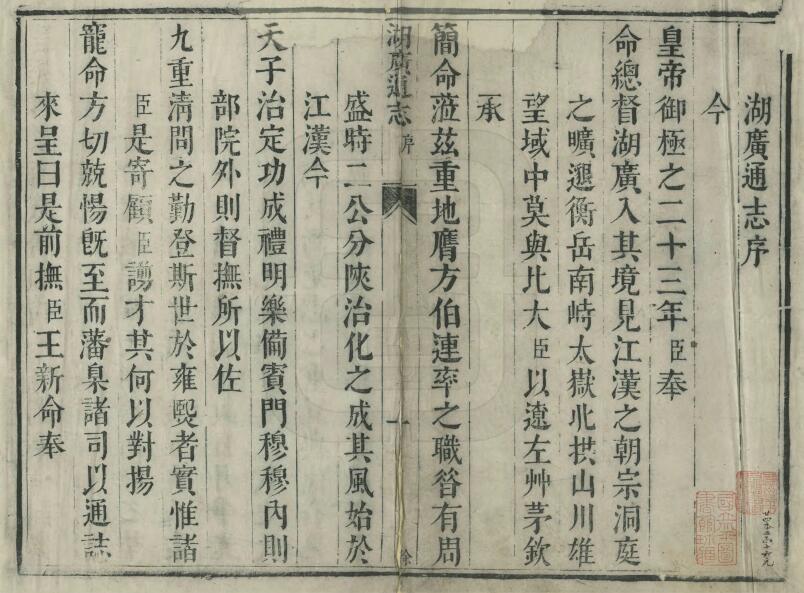 湖廣通志序
今
皇帝御極之二十三年臣奉
命總督湖廣入其境見江漢之朝宗洞庭
之曠邈衡岳南峙太嶽北拱山川雄
望域中莫與比大臣以遼左艸茅欽
承
簡命蒞茲重地膺方伯連率之職咎有周
湖廣通志 序 一 徐
盛時二公分陝治化之成其風始於
江漢今
天子治定功成禮明樂備賓門穆穆內則
部院外則督撫所以佐
九重清問之勤登斯世於雍熙者實惟諸
臣是寄顧臣謭才其何以對揚
寵命方切兢惕旣至而藩臬諸司以通誌
來呈曰是前撫臣王新命奉